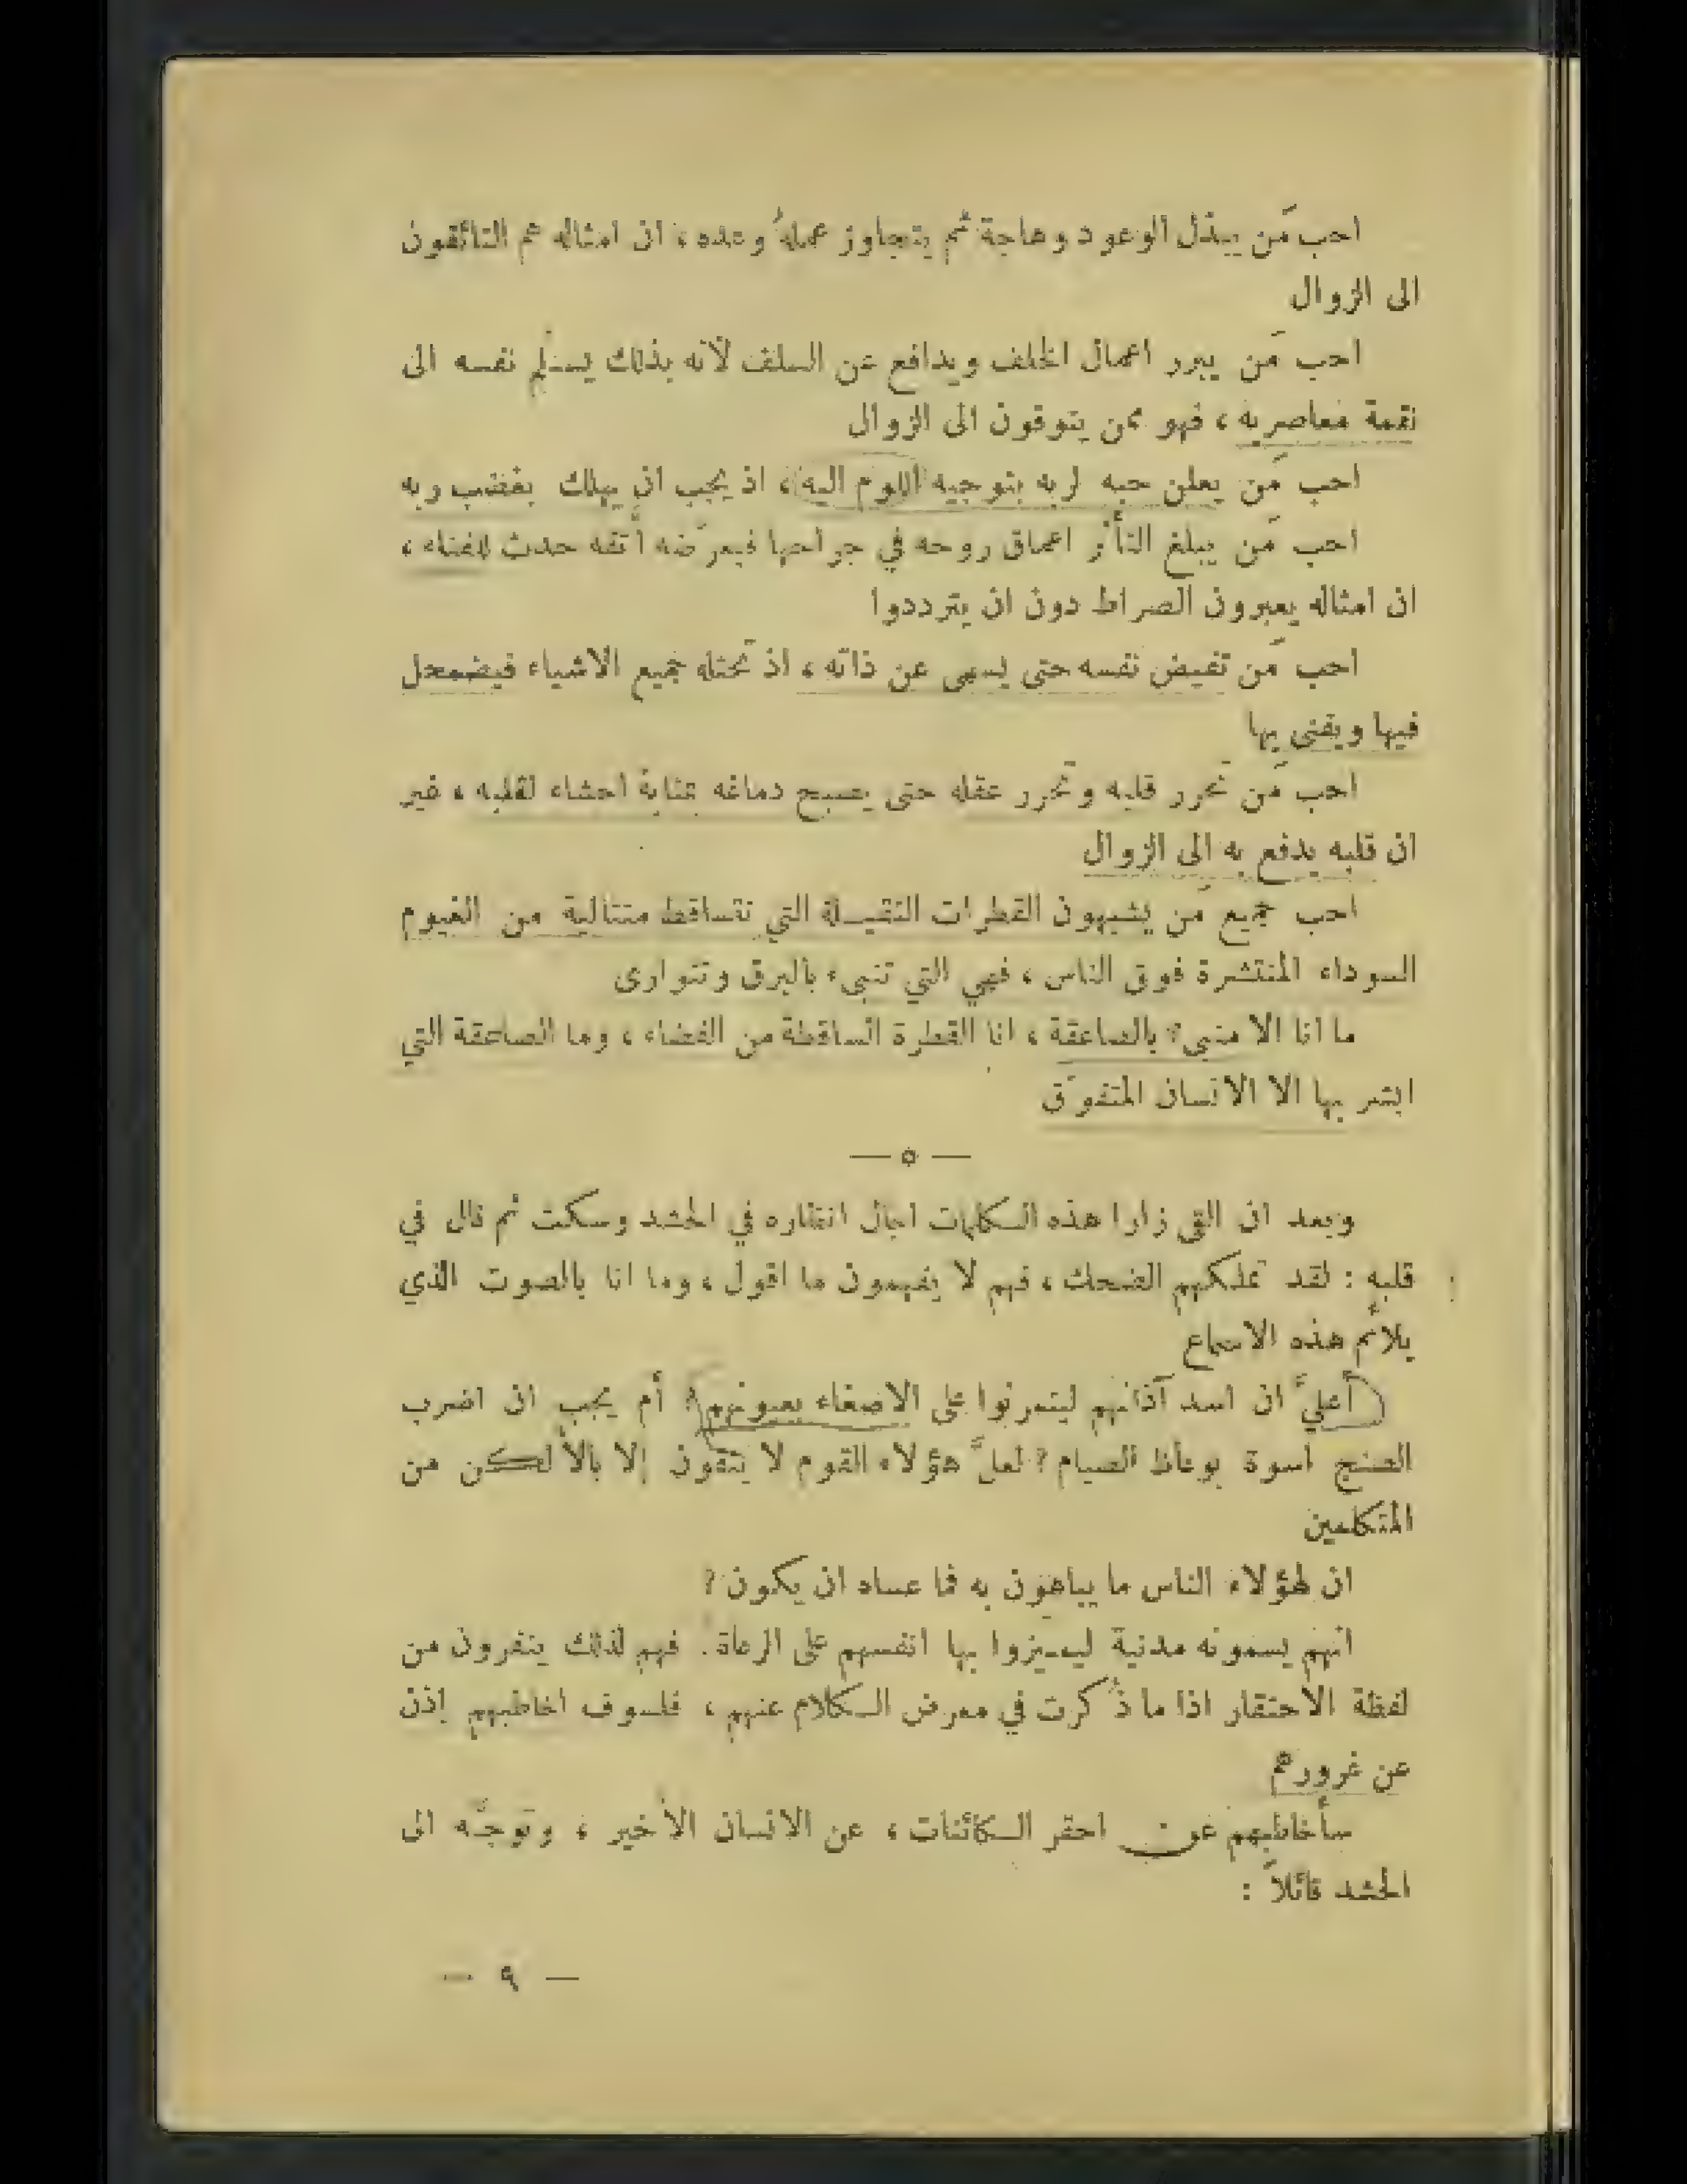 احب مَن يبذل الوعود وهاجة ثم يتجاوز عملهُ وعده ، ان امثاله هم التائقون
الى الزوال
احب مَن يبرر اعمال الخلف ويدافع عن السلف لأنه بذلك يسلم نفسه الى
نقمة معاصريه ، فهو ممن يتوقون الى الزوال
احب مَن يعلن حبه لربه بتوجيه اللوم اليه ، اذ يجب ان يهلك بغضب ربه
احب مَن يبلغ التأثر اعماق روحه في جراحها فيعرّضه أتفه حدث للفناء ،
ان امثاله يعبرون الصراط دون ان يترددوا
احب مَن تفيض نفسه حتى يسهى عن ذاته ، اذ تحتله جميع الاشياء فيضمحل
فيها ويفنى بها
احب مَن تحرر قلبه وتحرر عقله حتى يصبح دماغه بمثابة احشاء لقلبه ، غير
ان قلبه يدفع به الى الزوال
احب جميع مَن يشبهون القطرات الثقيلة التي تتساقط متتالية من الغيوم
السوداء المنتشرة فوق الناس ، فهي التي تنبىء بالبرق وتتوارى
ما انا الا منبىء بالصاعقة ، انا القطرة الساقطة من الفضاء ، وما الصاعقة التي
ابشر بها الا الانسان المتفوّق
— ٥ —
وبعد ان القى زارا هذه الكلمات اجال انظاره في الحشد وسكت ثم قال في
قلبه : لقد تملكهم الضحك ، فهم لا يفهمون ما اقول ، وما انا بالصوت الذي
يلائم هذه الاسماع
أعليّ ان اسد آذانهم ليتمرنوا على الاصغاء بعيونهم ؟ أم يجب ان اضرب
الصنج اسوة بوعاظ الصيام ؟ لعلَّ هؤلاء القوم لا يثقون إلا بالألكن من
المتكلمين
ان لهؤلاء الناس ما يباهون به فما عساه ان يكون ؟
انهم يسمونه مدنية ليميزوا بها انفسهم على الرعاة . فهم لذلك ينفرون من
لفظة الاحتقار اذا ما ذُكرت في معرض الكلام عنهم ، فلسوف اخاطبهم إذن
عن غرورهم
سأخاطبهم عن احقر الكائنات ، عن الانسان الأخير ، وتوجَّه الى
الحشد قائلاً :
— ٩ —